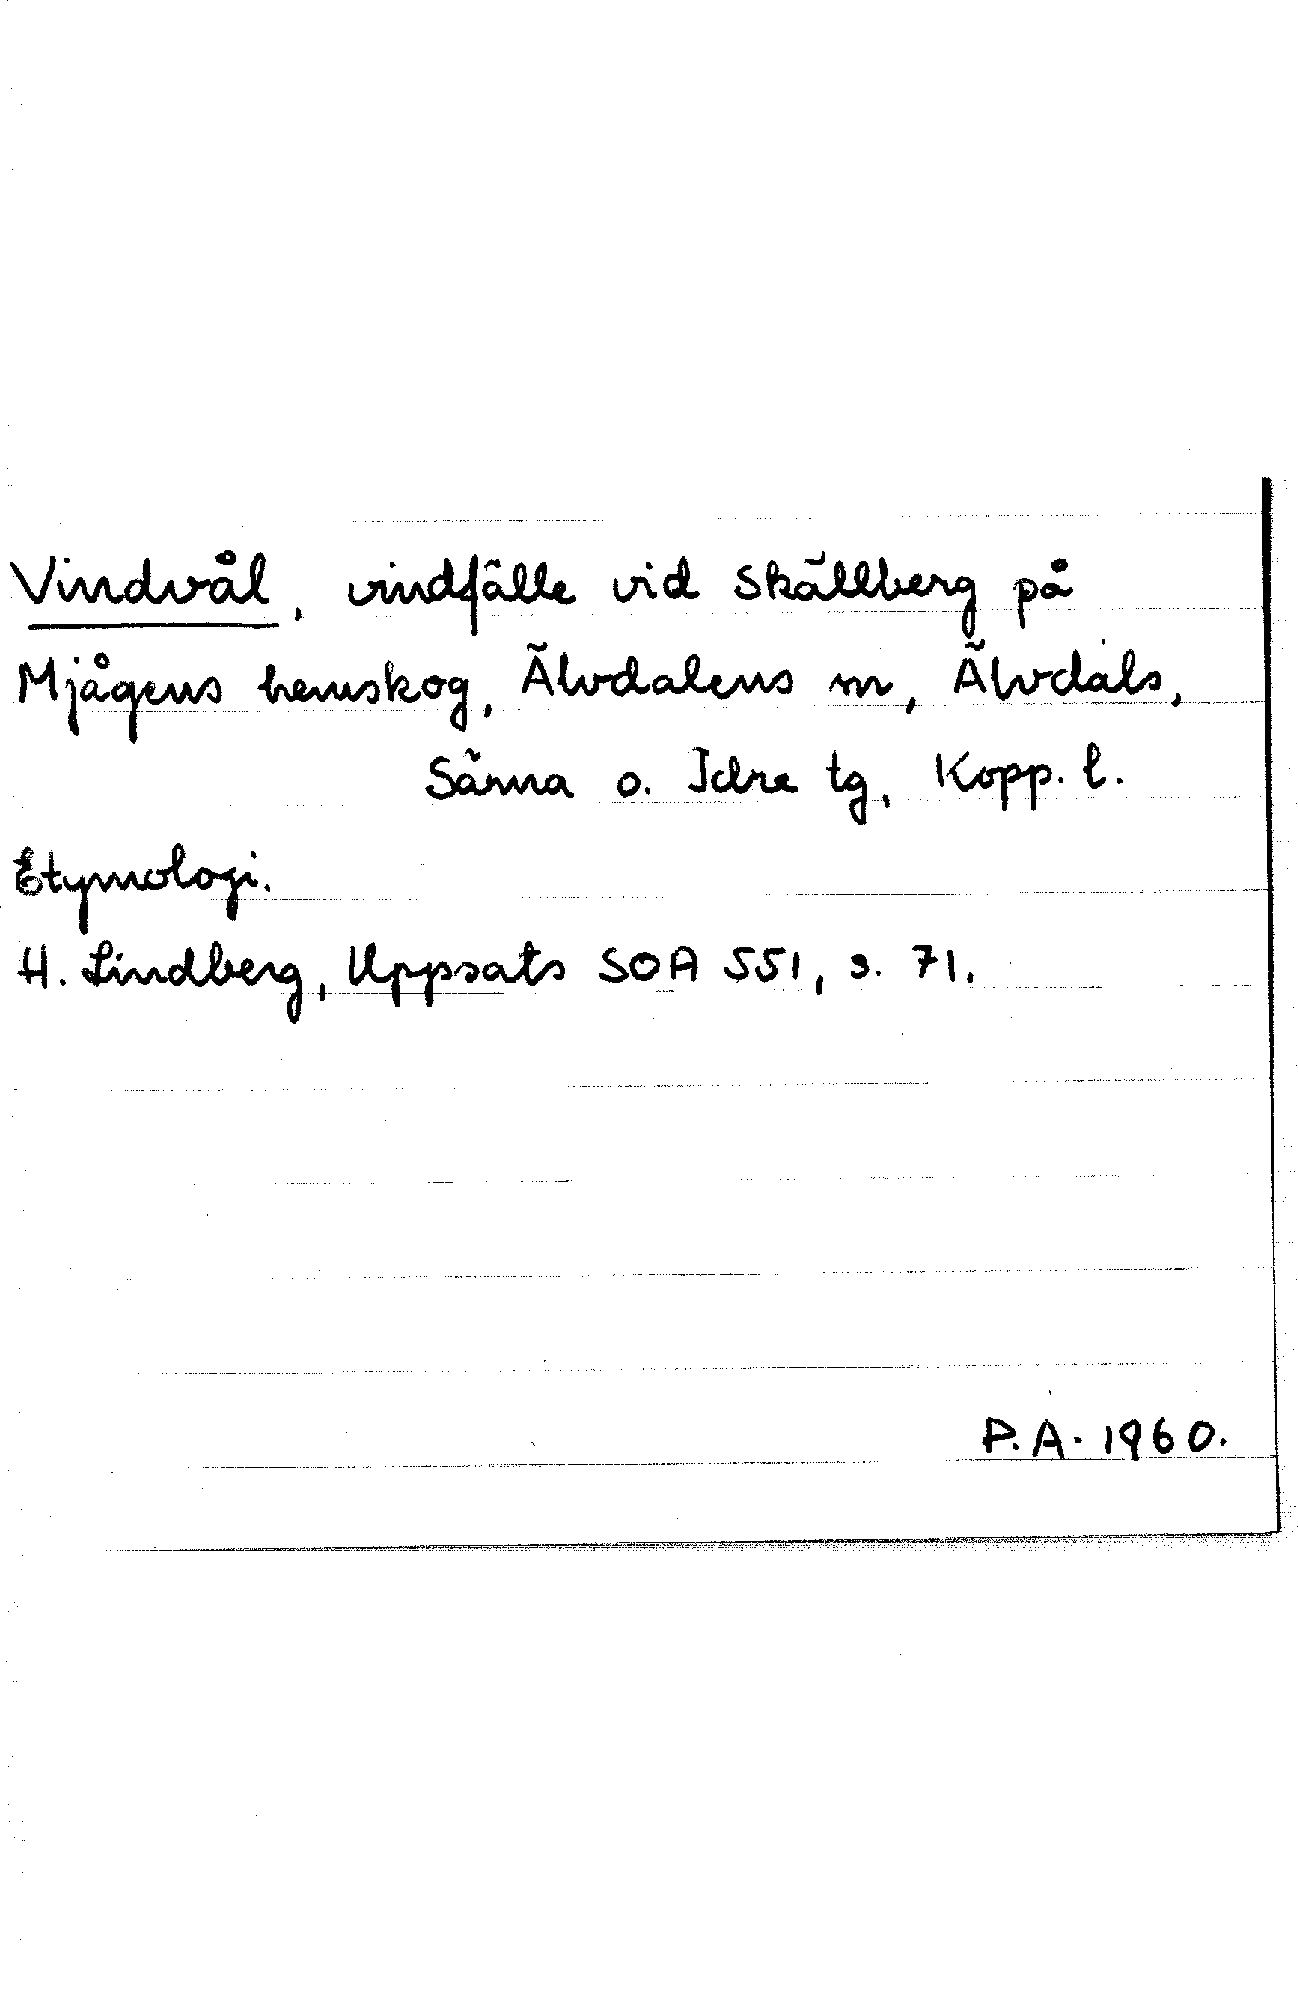 Vindvål, vindfälle vid Skällberg på
Mjågens hemskog, Älvdalens m, Älvdals,
Särna o. Idre tg, Kopp. l.
Etymologi.
H. Lindberg, Uppsats SOA 551, s. 71.
P.A. 1960.